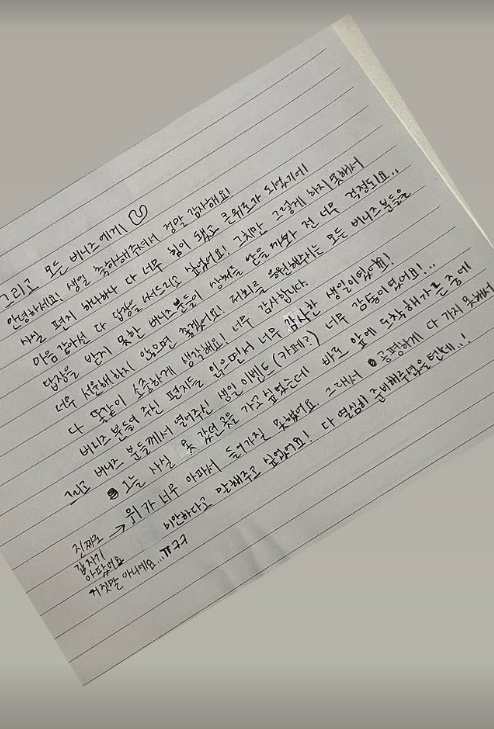 그리고 모든 버니즈에게! ♡
안녕하세요! 생일 축하해주셔서 정말 감사해요!
사실 편지 하나하나 다 너무 힘이 됐고 큰 위로가 되었기에
마음 같아선 다 답장을 써드리고 싶었어요! 그치만 그렇게 하지 못해서
답장을 받지 못한 버니즈분들이 상처를 받을까봐 전 너무 걱정되요..
너무 서운해하지 않으면 좋겠어요! 저희를 응원해주시는 모든 버니즈분들을
다 똑같이 소중하게 생각해요! 너무 감사합니다.
버니즈 분들이 주신 편지들 읽으면서 너무 감사한 생일이었어요!
그리고 버니즈 분들께서 열어주신 생일 이벤트 (카페?) 너무 감동이었어요!..
오늘 사실 못 갔던 곳을 가고 싶었는데 바로 앞에 도착해가는 중에
진짜로 → 위가 너무 아파서 들어가질 못했어요 그래서 공평하게 다 가지 못해서
갑자기 미안하다고 말해주고 싶었어요! 다 열심히 준비해주셨을텐데..!
아팠어요
거짓말 아니에요...ㅠㅋㅋ